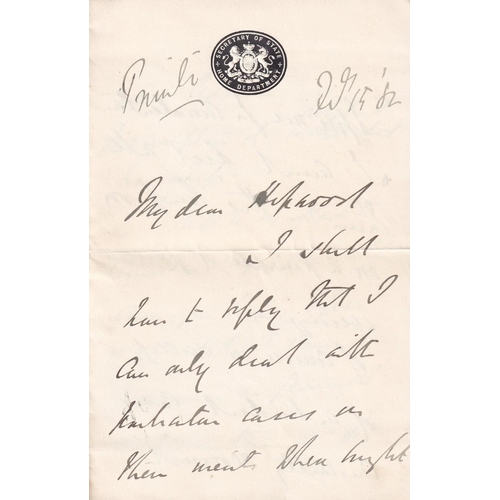 SECRETARY OF STATE
HOME DEPARTMENT
Private
15 '82
My dear Hopwood
I shall
have to reply that I
can only deal with
cases on
their merits when brought